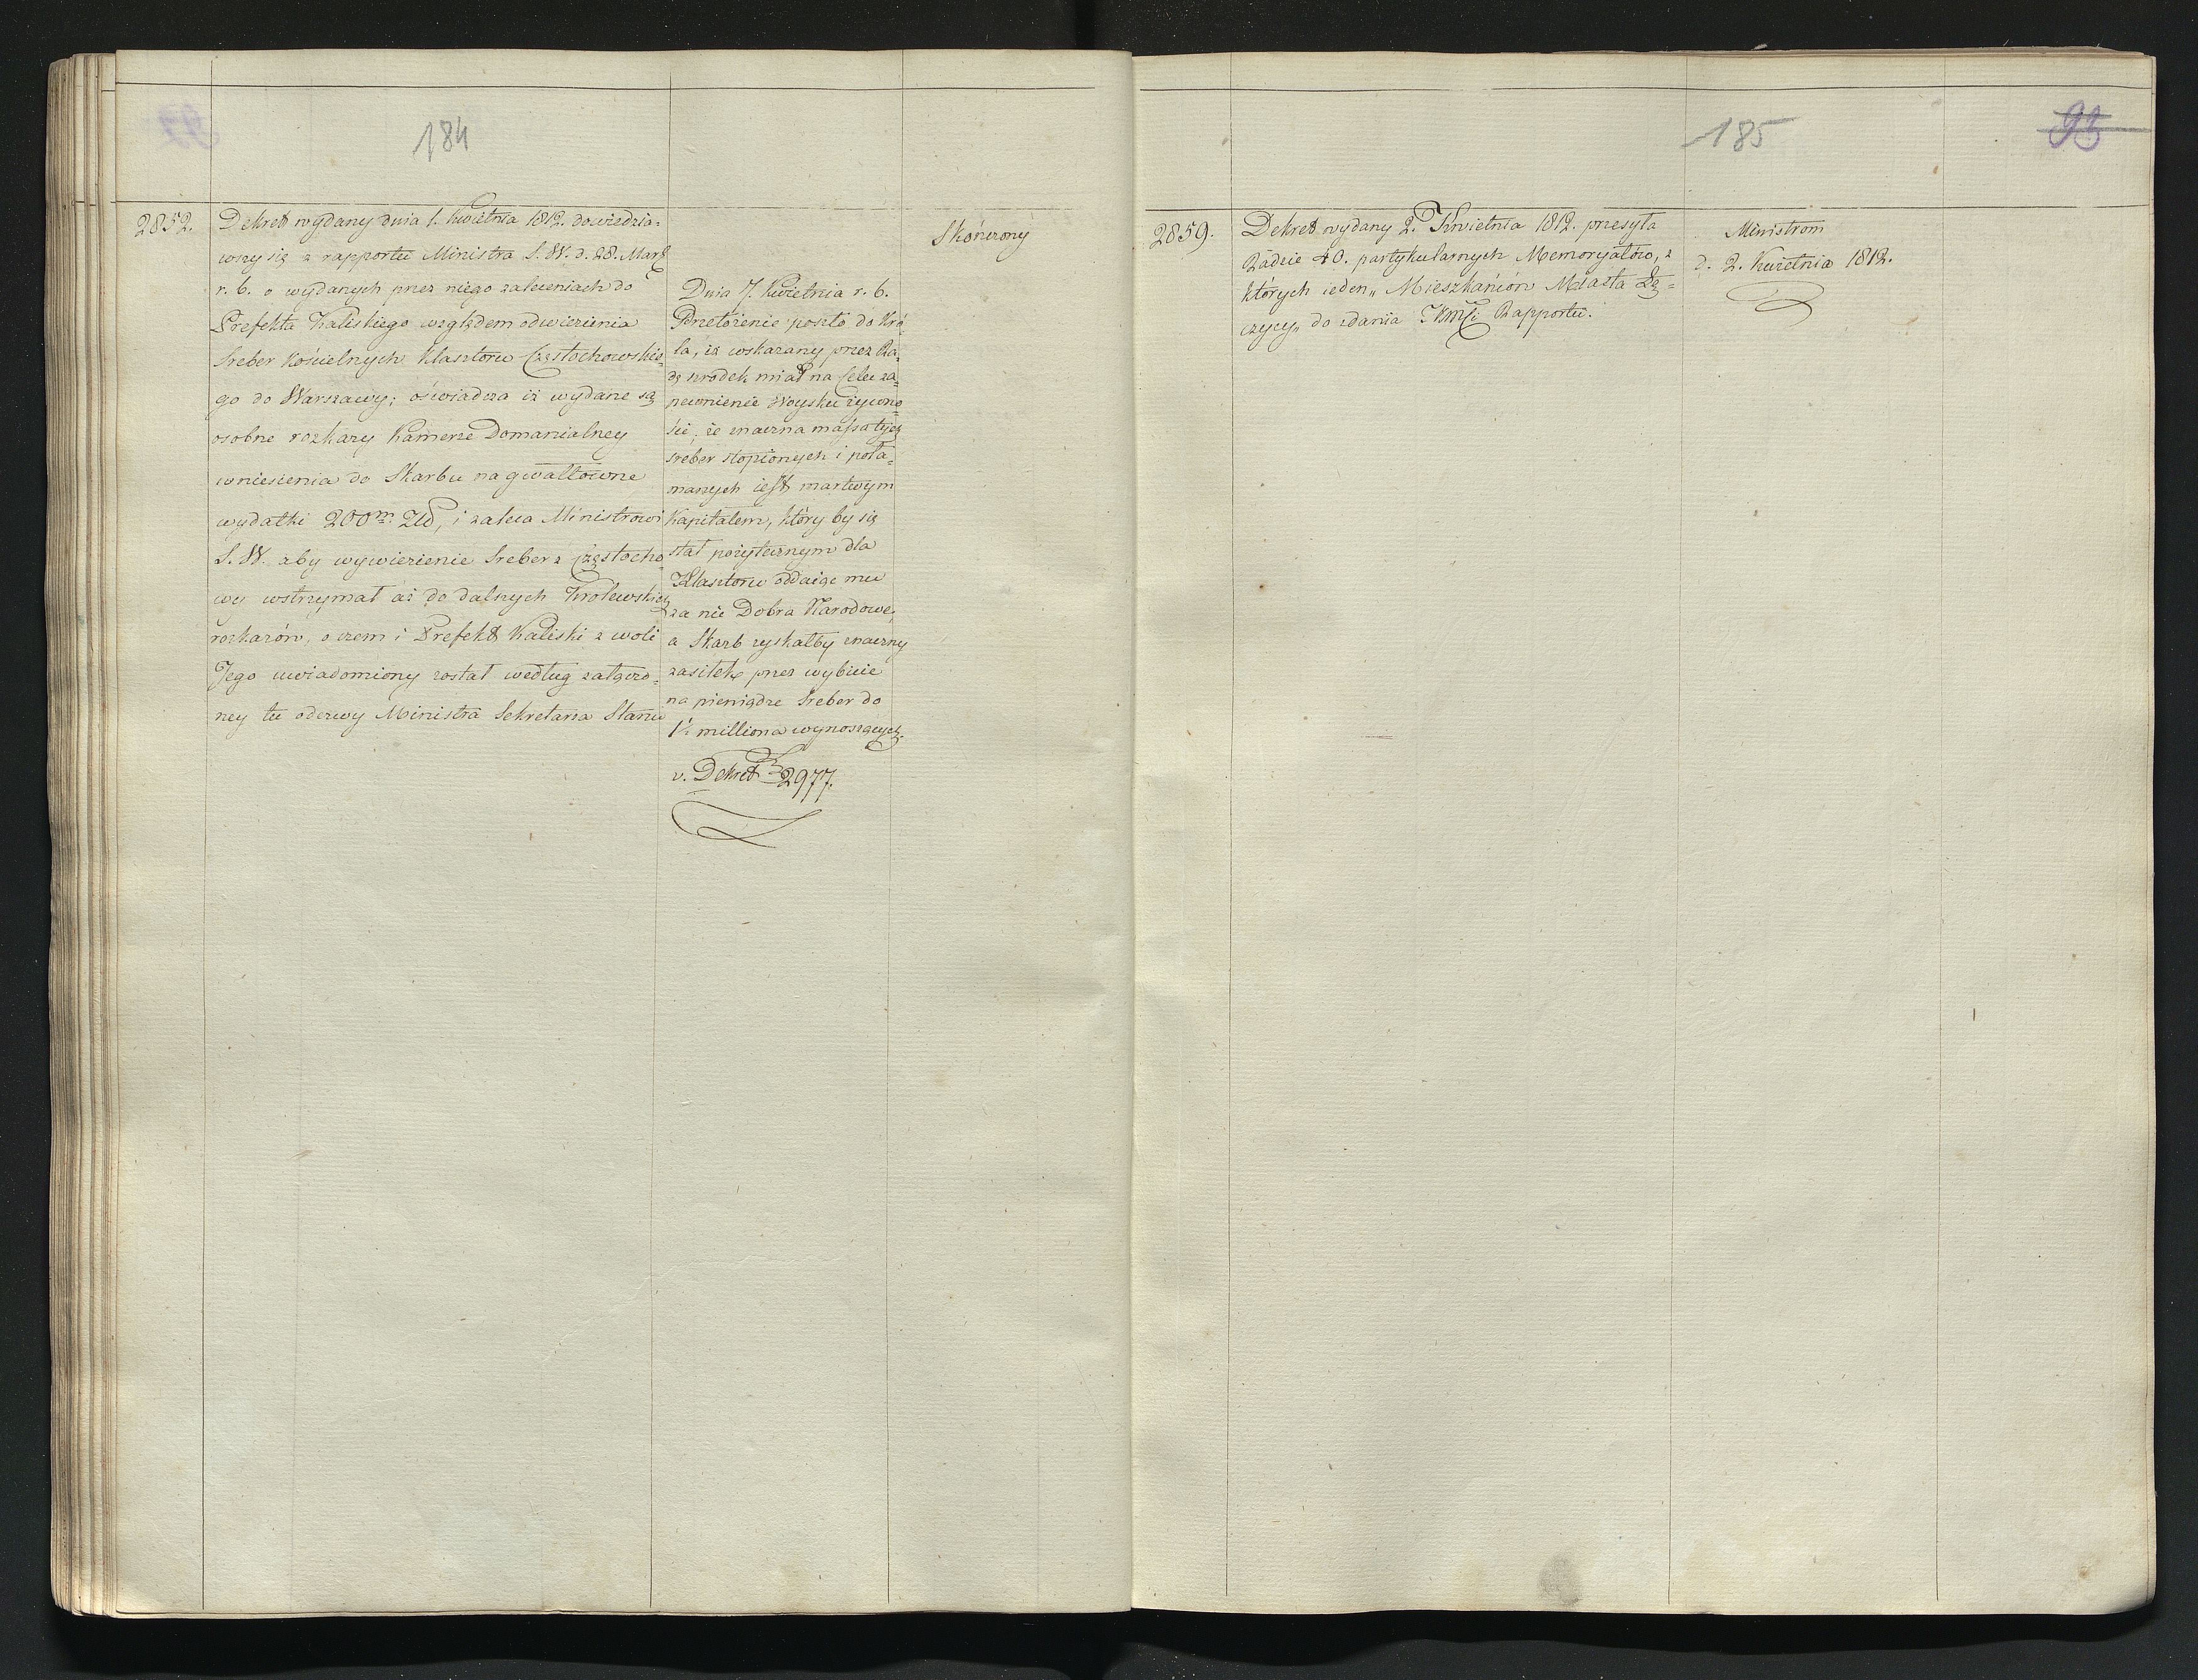 184
2852.
Dekret wydany dnia 1. Kwietnia 1812. dowiedzia=
wszy się z rapportu Ministra S. W. d. 28. Marca
r. b. o wydanych przez niego zaleceniach do
Prefekta Kaliskiego względem odwiezienia
Sreber Kościelnych Klasztoru Częstochowskie=
go do Warszawy; oświadcza iż wydane są
osobne rozkazy Kamerze Domanialney
wniesienia do Skarbu na gwałtowne
wydatki 200m. Zł, i zaleca Ministrowi
S. W. aby wywiezienie Sreber z Częstocho=
wy wstrzymał aż do dalszych Krolewskich
rozkazów, o czem i Prefekt Kaliski z woli
Jego uwiadomiony został według załączo=
ney tu odezwy Ministra Sekretarza Stanu
Dnia 7. Kwietnia r. b.
Przełożenie poszło do Kró
la, iż wskazany przez Ra=
dę srodek miał na Celu za=
pewnienie Woysku żywno=
ści, że znaczna massa tych
sreber stopionych i poła=
manych iest martwym
Kapitałem, który by się
stał pożytecznym dla
Klasztoru oddaiąc mu
za nie Dobra Narodowe,
a Skarb zyskałby znaczny
zasiłek przez wybicie
na pieniądze Sreber do
1½ milliona wynoszących.
v. Dekret 2977.
Skończony
185
93
2859.
Dekret wydany 2. Kwietnia 1812. przesyła
Radzie 40. partykularnych Memoryałów, z
których ieden „Mieszkańców Miasta Łę=
czycy„ do zdania JKMci Rapportu.
Ministrom
d. 2. Kwietnia 1812.